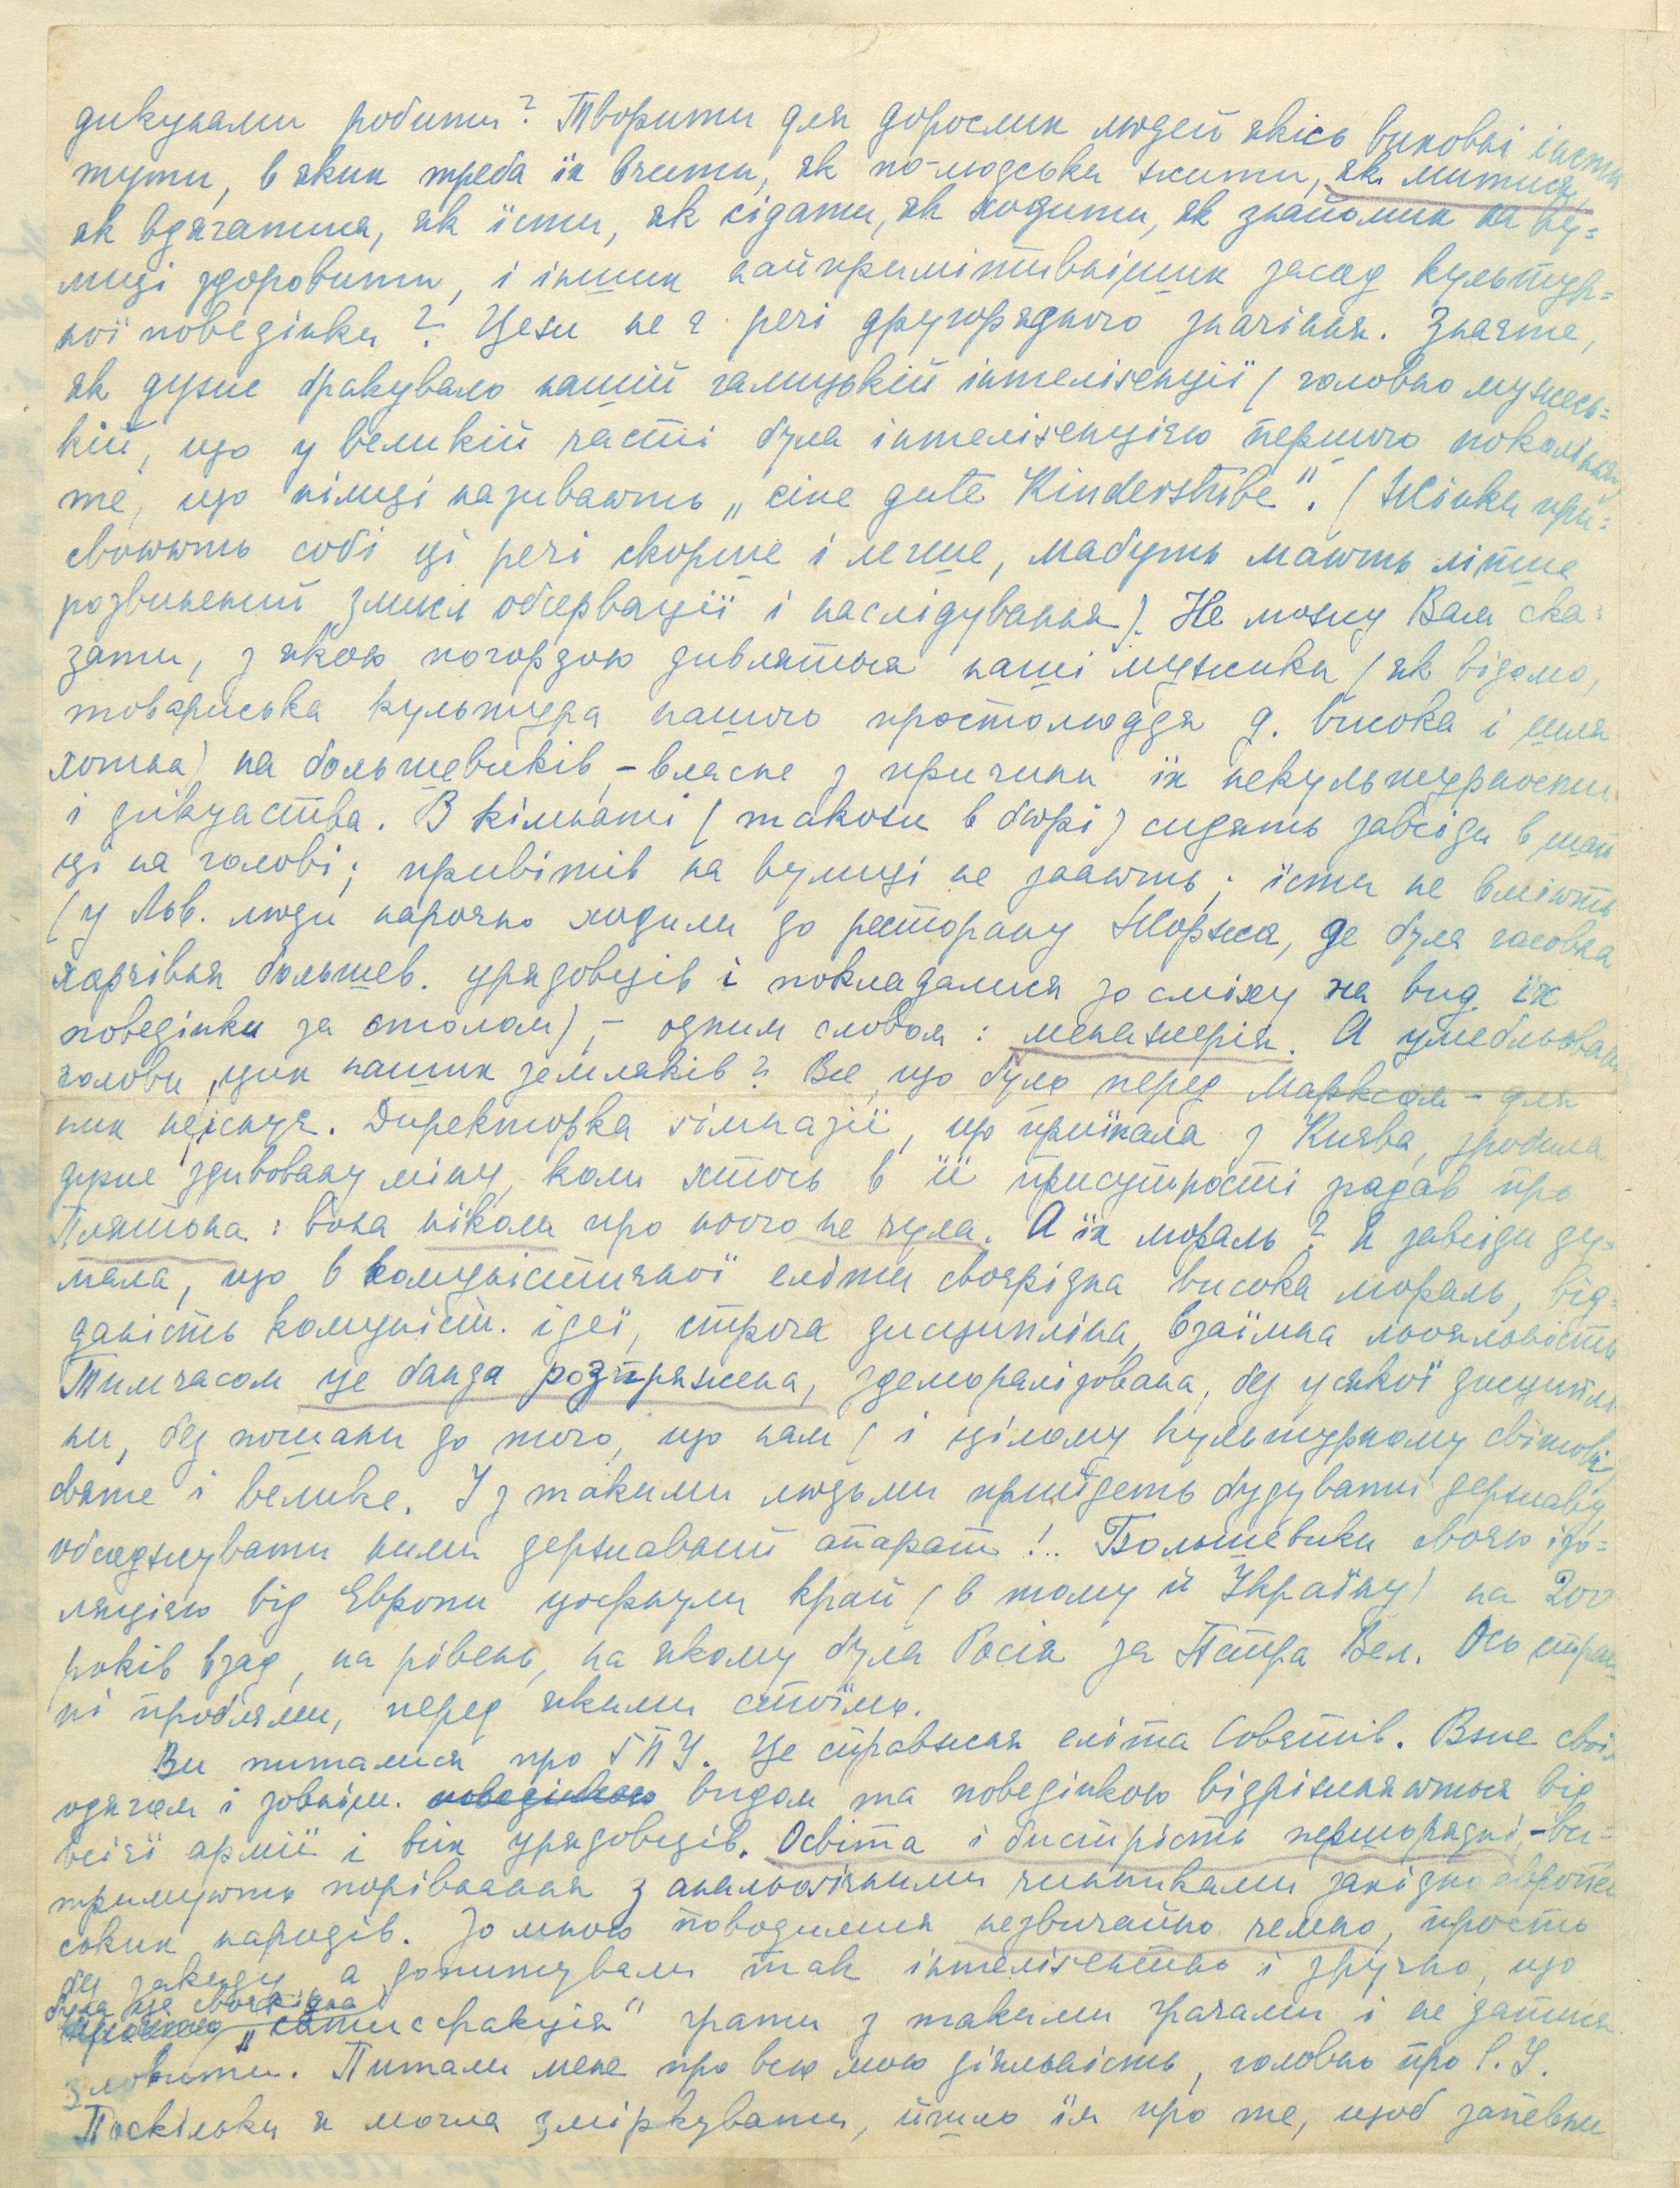 дикунами робити? Творити для дорослих людей якісь виховні інсти
тути, в яких треба їх вчити, як по-людськи жити, як митися,
як вдягатися, як їсти, як сідати, як ходити, як знайомих на ву=
лиці здоровити, і інших найпримітивніших засад культур=
ної поведінки? Цеж не є речі другорядного значіння. Знаєте,
як дуже бракувало нашій галицькій інтелігенції (головно мужесь=
кій, що у великій часті була інтелігенцією першого покоління)
те, що німці називають „eine gute Kinderstube". (Жінки при=
своюють собі ці речі скорше і легше, мабуть мають ліпше
розвинений змисл обсервації і наслідування). Не можу Вам ска=
зати, з якою погордою дивляться наші мужики (як відомо,
товариська культура нашого простолюддя д. висока і шля
хотна) на большевиків, – власне з причини їх некультурности
і дикунства. В кімнаті (також в бюрі) сидять завсіди в шап
ці на голові; привітів на вулиці не знають; їсти не вміють
(у Льв. люди нарочно ходили до ресторану Жоржа, де була часова
харчівня большев. урядовців і покладалися зо сміху на вид їх
поведінки за столом), – одним словом: менажерія. А умебльовання
голови цих наших земляків? Все, що було перед Марксом – для
них неіснує. Директорка гімназії, що приїхала з Києва, зробила
дуже здивовану міну, коли хтось в її присутности згадав про
Плятона: вона ніколи про нього не чула. А їх мораль? Я завсіди ду=
мала, що в комуністичної еліти своєрідна висока мораль, від=
даність комуніст. ідеї, строга дисципліна, взаїмна льояльність
Тимчасом це банда розпряжена, здеморалізована, без усякої дисциплі
ни, без пошани до того, що нам (і цілому культурному світові)
святе і велике. І з такими людьми прийдеть будувати державу,
обсаджувати ними державний апарат!.. Большевики своєю ізо=
ляцією від Европи цофнули край (в тому й Україну) на 200
років взад, на рівень, на якому була Росія за Петра Вел. Ось страш
ні проблєми, перед якими стоїмо.
Ви питалися про ГПУ. Це справжня еліта Совєтів. Вже своїм
одягом і зовнішн. поведінкою видом та поведінкою відріжняються від
всієї армії і всіх урядовців. Освіта і бистрість першорядні, – ви=
тримують порівнання з анальогічними чинниками західно европей
ських народів. Зо мною поводилися незвичайно чемно, просто
без закиду, а допитували так інтелігентно і зручно, що
була це своєрідна
„сатисфакція" грати з такими грачами і не датися
зловити. Питали мене про всю мою діяльність, головно про С. У.
Поскільки я могла зміркувати, йшло їм про те, щоб запевни